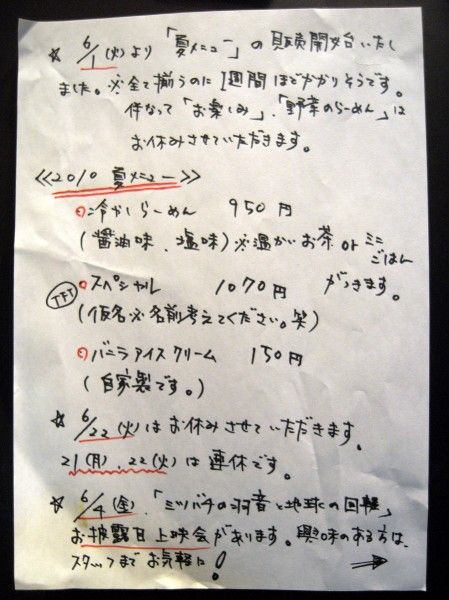 ☆ 6/1(火)より「夏メニュー」の販売開始いたし
ました。※全て揃うのに1週間ほどかかりそうです。
伴なって「お楽しみ」、「野菜のらーめん」は
お休みさせていただきます。
≪2010 夏メニュー≫
冷やしらーめん 950円
(醤油味、塩味)※温かいお茶 or ミニ
ごはん
がつきます。
TFT
スペシャル 1070円
(仮名※名前考えてください。笑)
バニラアイスクリーム 150円
(自家製です。)
☆ 6/22(火)はお休みさせていただきます。
21(月)、22(火)は連休です。
☆ 6/4(金)、「ミツバチの羽音と地球の回転」
お披露目上映会があります。興味のある方は、
スタッフまでお気軽に!